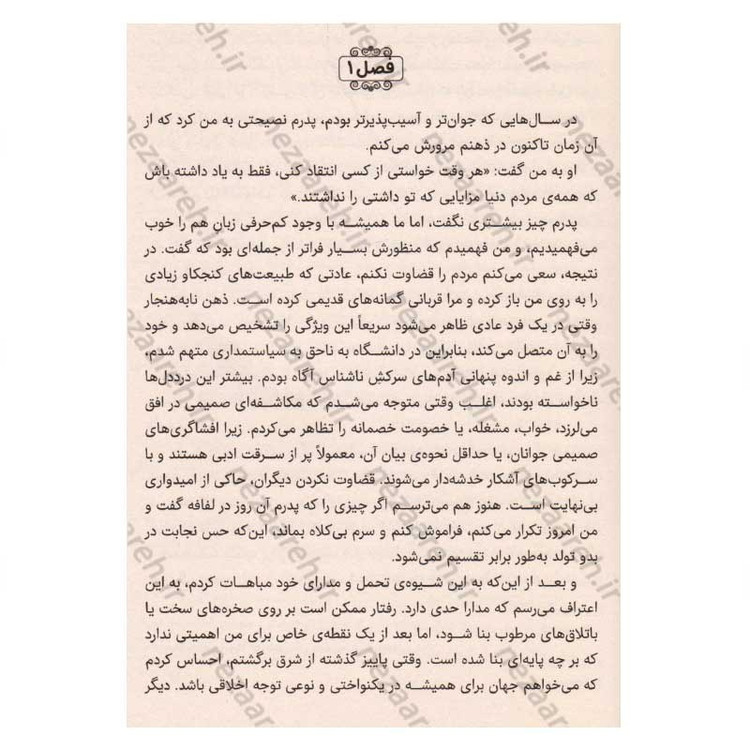 فصل ۱
در ســال‌هایی که جوان‌تر و آسیب‌پذیرتر بودم، پدرم نصیحتی به من کرد که از
آن زمان تاکنون در ذهنم مرورش می‌کنم.
او به من گفت: «هر وقت خواستی از کسی انتقاد کنی، فقط به یاد داشته باش
که همه‌ی مردم دنیا مزایایی که تو داشتی را نداشتند.»
پدرم چیز بیشتری نگفت، اما ما همیشــه با وجود کم‌حرفی زبانِ هم را خوب
می‌فهمیدیم، و من فهمیدم که منظورش بسیار فراتر از جمله‌ای بود که گفت. در
نتیجه، سعی می‌کنم مردم را قضاوت نکنم، عادتی که طبیعت‌های کنجکاو زیادی
را به روی من باز کرده و مرا قربانی گمانه‌های قدیمی کرده اســت. ذهن نابه‌هنجار
وقتی در یک فرد عادی ظاهر می‌شود سریعاً این ویژگی را تشخیص می‌دهد و خود
را به آن متصل می‌کند، بنابراین در دانشــگاه به ناحق به سیاستمداری متهم شدم،
زیرا از غم و اندوه پنهانی آدم‌های سرکشِ ناشناس آگاه بودم. بیشتر این درددل‌ها
ناخواســته بودند، اغلــب وقتی متوجه می‌شــدم که مکاشــفه‌ای صمیمی در افق
می‌لرزد، خواب، مشغله، یا خصومت خصمانه را تظاهر می‌کردم. زیرا افشاگری‌های
صمیمی جوانان، یا حداقل نحوه‌ی بیان آن، معمولاً پر از ســرقت ادبی هستند و با
ســرکوب‌های آشکار خدشه‌دار می‌شوند. قضاوت نکردن دیگران، حاکی از امیدواری
بی‌نهایت اســت. هنوز هم می‌ترســم اگر چیزی را که پدرم آن روز در لفافه گفت و
من امروز تکرار می‌کنم، فراموش کنم و سرم بی‌کلاه بماند، این‌که حس نجابت در
بدو تولد به‌طور برابر تقسیم نمی‌شود.
و بعد از این‌که به این شــیوه‌ی تحمل و مدارای خود مباهــات کردم، به این
اعتراف می‌رسم که مدارا حدی دارد. رفتار ممکن است بر روی صخره‌های سخت یا
باتلاق‌های مرطوب بنا شــود، اما بعد از یک نقطه‌ی خاص برای من اهمیتی ندارد
که بر چه پایه‌ای بنا شده است. وقتی پاییز گذشته از شرق برگشتم، احساس کردم
که می‌خواهم جهان برای همیشــه در یکنواختی و نوعی توجه اخلاقی باشد. دیگر
nezaareh.ir